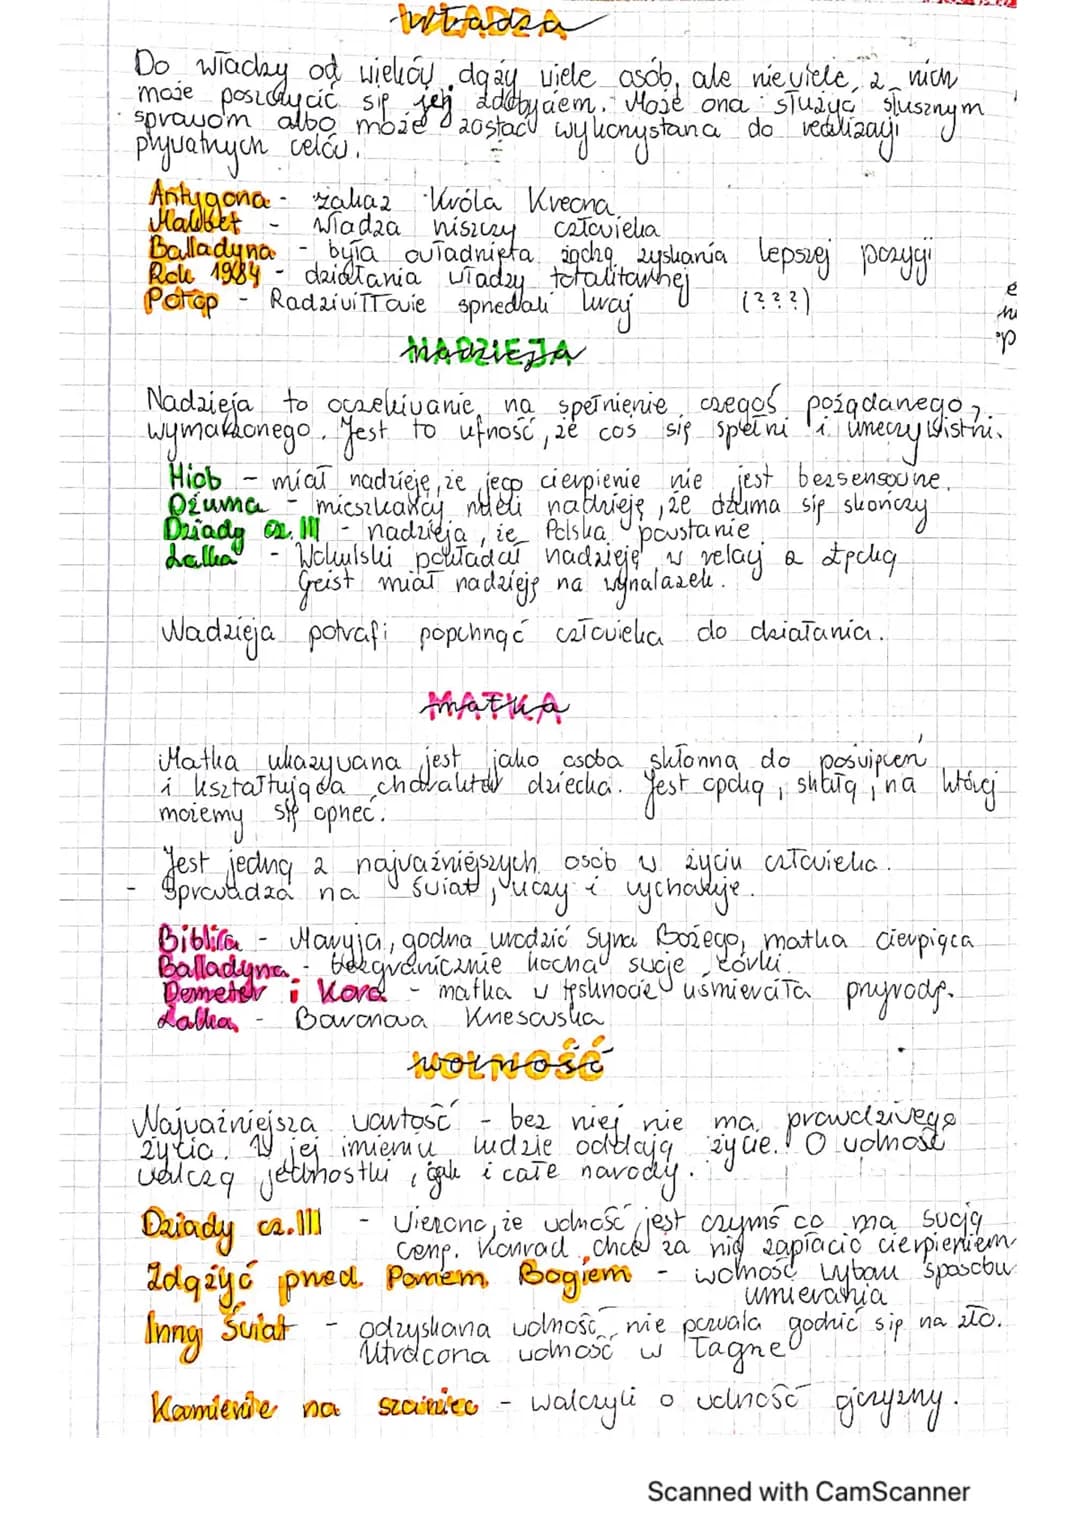 Władza
Do władzy od wieków dąży wiele osób, ale niewiele z nich
może poszczycić się jej zdobyciem. Może ona służyć słusznym
sprawom albo może zostać wykorzystana do realizacji
prywatnych celów.
Antygona - zakaz Króla Kreona
Makbet - władza niszczy człowieka
Balladyna - była owładnięta żądzą zyskania lepszej pozycji
Rok 1984 - działania władzy totalitarnej
Potop - Radziwiłłowie sprzedali kraj (???)
NADZIEJA
Nadzieja to oczekiwanie na spełnienie czegoś pożądanego,
wymarzonego. Jest to ufność, że coś się spełni i urzeczywistni.
Hiob - miał nadzieję, że jego cierpienie nie jest bezsensowne.
Dżuma - mieszkańcy mieli nadzieję, że dżuma się skończy
Dziady cz. III - nadzieja, że Polska powstanie
Lalka - Wokulski pokładał nadzieję w relacji z Łęcką
Geist miał nadzieję na wynalazek.
Nadzieja potrafi popchnąć człowieka do działania.
MATKA
Matka ukazywana jest jako osoba skłonna do poświęceń
i kształtująca charakter dziecka. Jest opoką, skałą, na której
możemy się oprzeć.
Jest jedną z najważniejszych osób w życiu człowieka.
- Sprowadza na świat, uczy i wychowuje.
Biblia - Maryja, godna urodzić Syna Bożego, matka cierpiąca
Balladyna - bezgranicznie kocha swoje córki
Demeter i Kora - matka w tęsknocie uśmierciła przyrodę.
Lalka - Baronowa Krzesowska
WOLNOŚĆ
Najważniejsza wartość - bez niej nie ma prawdziwego
życia. W jej imieniu ludzie oddają życie. O wolność
walczą jednostki, jak i całe narody.
Dziady cz. III - Wierzono, że wolność jest czymś co ma swoją
cenę. Konrad chce za nią zapłacić cierpieniem
Zdążyć przed Panem Bogiem - wolność wyboru sposobu
umierania
Inny Świat - odzyskana wolność nie pozwala godzić się na zło.
Utracona wolność w łagrze
Kamienie na szaniec - walczyli o wolność ojczyzny.
Scanned with CamScanner